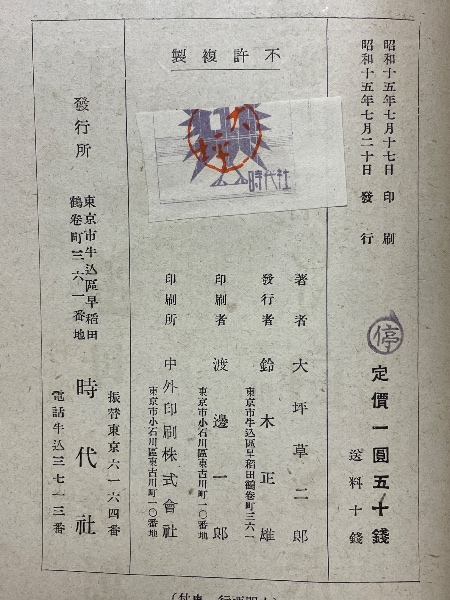 昭和十五年七月十七日 印刷
昭和十五年七月二十日 發行
停
定價一圓五十錢
送料十錢
不許複製
時代社
著者 大坪草二郎
發行者 鈴木正雄
東京市牛込區早稻田鶴卷町三六一
印刷者 渡邊一郎
東京市小石川區東古川町一〇番地
印刷所 中外印刷株式會社
東京市小石川區東古川町一〇番地
發行所
東京市牛込區早稻田
鶴卷町三六一番地
時代社
振替東京六一六四番
電話牛込三七一三番